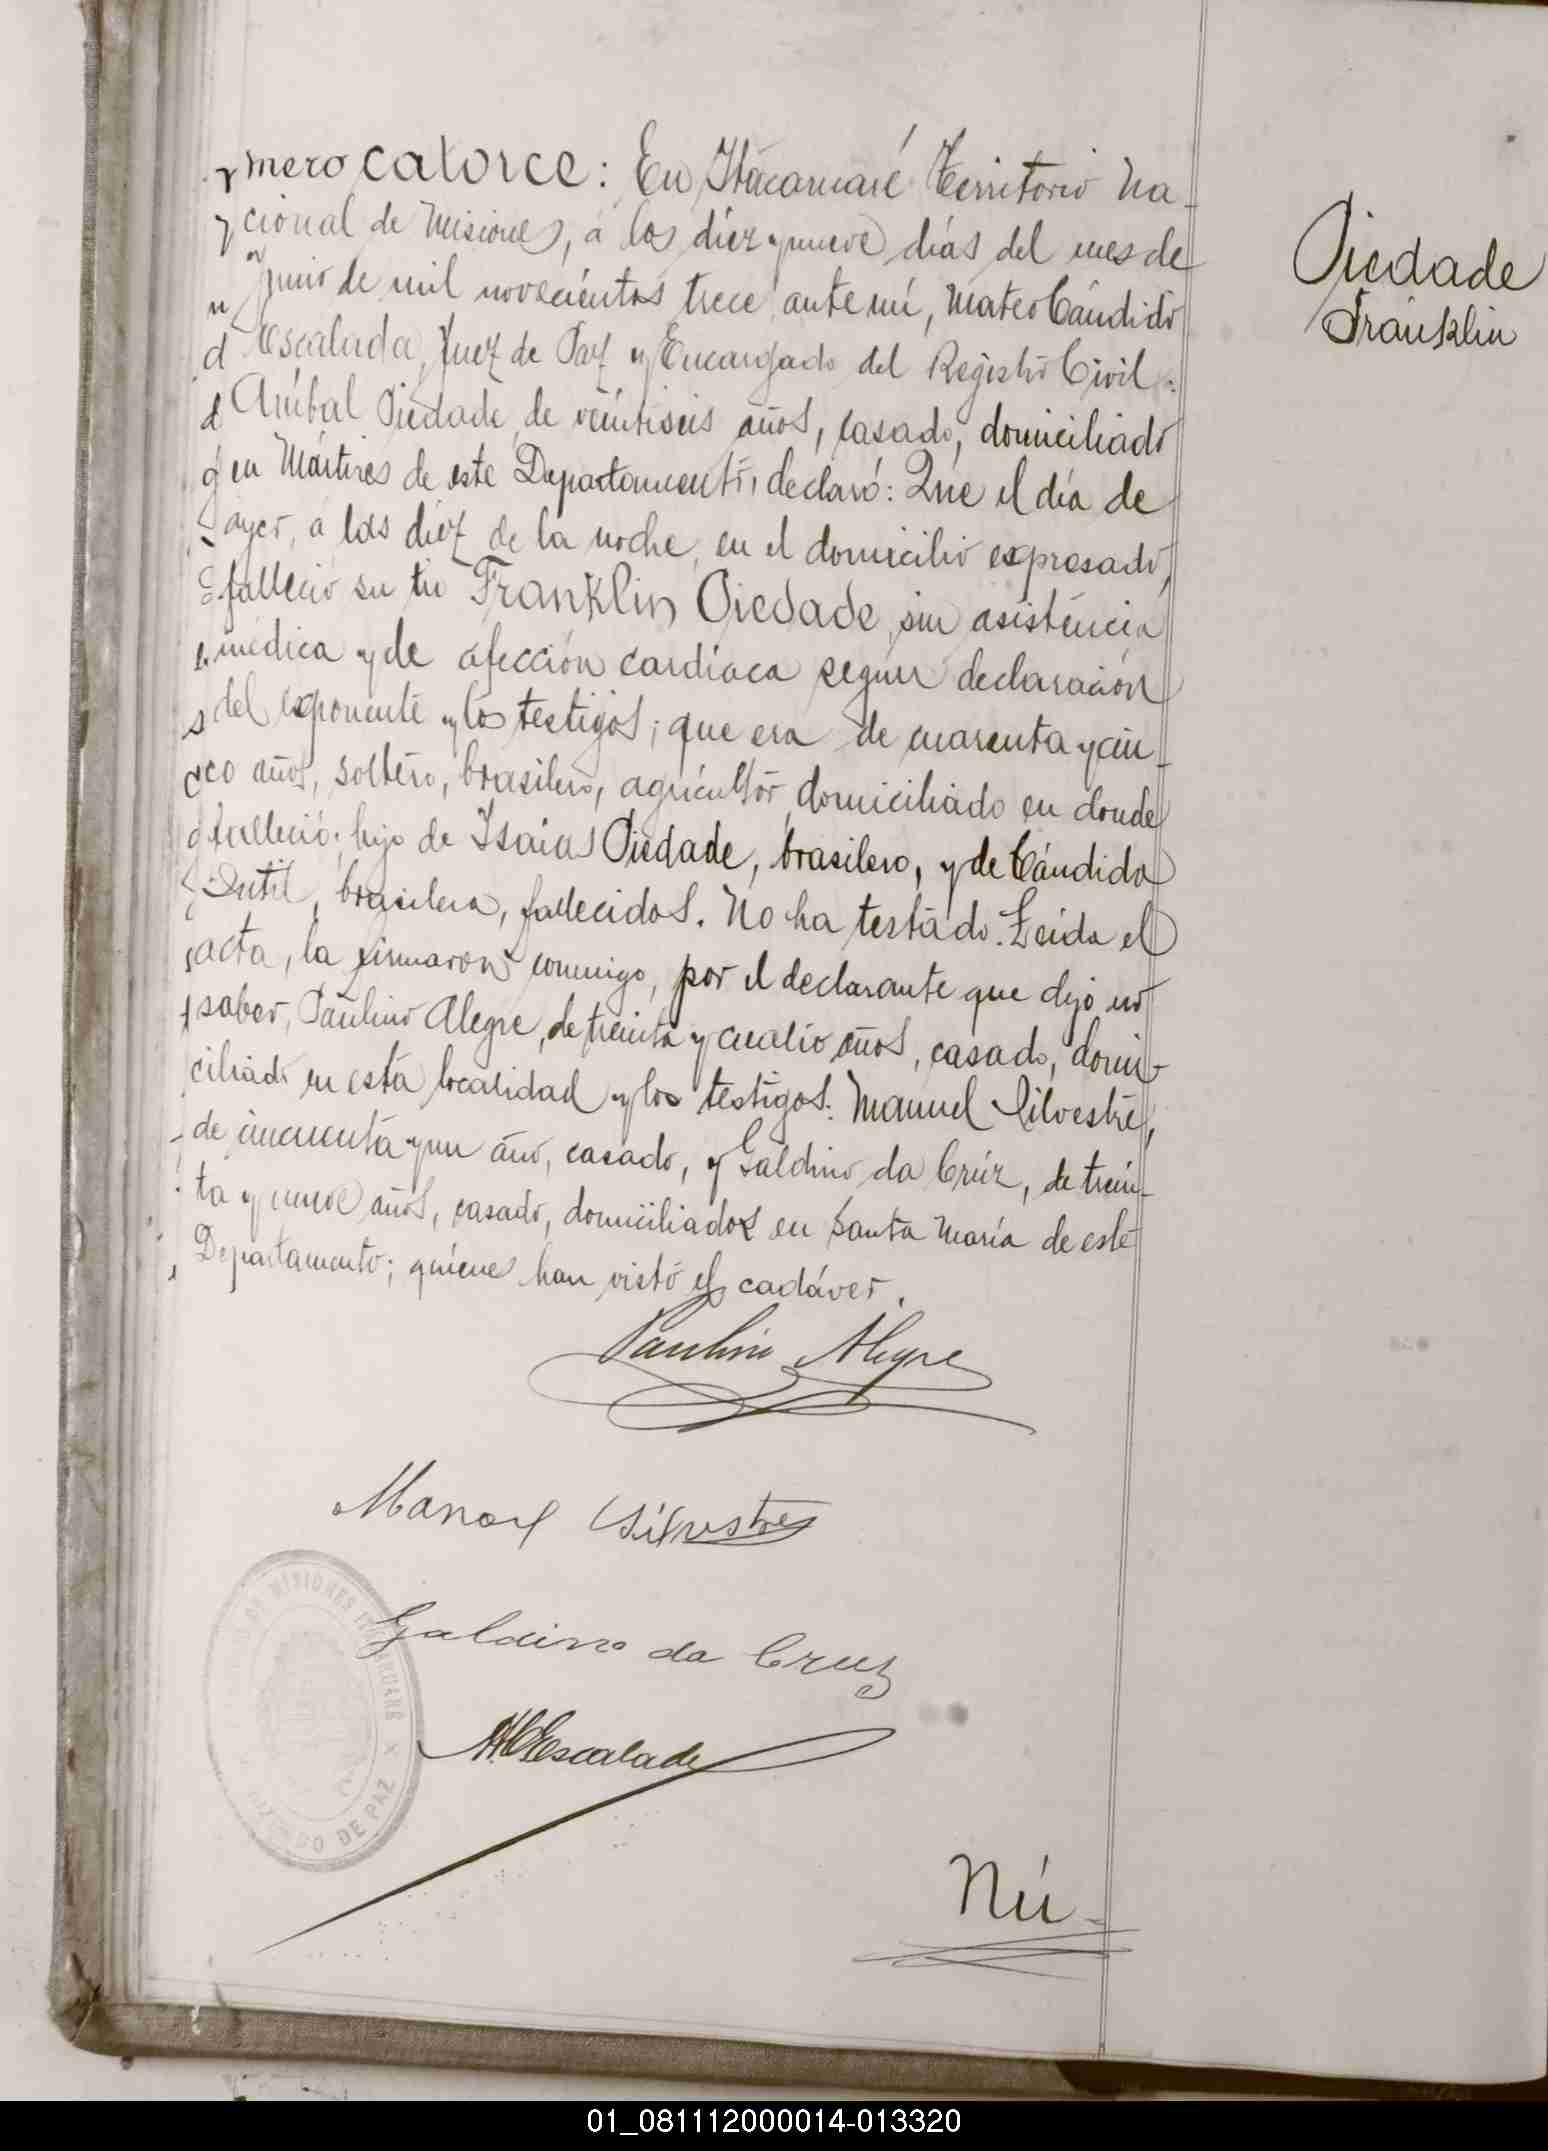 mero catorce: En Itacaruaré Territorio Na-
cional de Misiones, á los diez y nueve días del mes de
Junio de mil novecientos trece ante mí, Mateo Cándido
Escalada, Juez de Paz y Encargado del Registro Civil:
Aníbal Piedade, de veintiseis años, casado, domiciliado
en Mártires de este Departamento, declaró: Que el día de
ayer, á las diez de la noche, en el domicilio expresado,
falleció su tio Franklin Piedade, sin asistencia
médica y de afección cardíaca según declaración
del exponente y los testigos; que era de cuarenta y cin-
co años, soltero, brasilero, agricultor, domiciliado en donde
falleció; hijo de Isaias Piedade, brasilero, y de Cándida
brasilera, fallecidos. No ha testado. Leída el
acta, la firmaron conmigo, por el declarante que dijo no
saber, Paulino Alegre, de treinta y cuatro años, casado, domi-
ciliado en esta localidad y los testigos: Manuel Silvestre,
de cincuenta y un año, casado, y Galdino da Crúz, de trein-
ta y nueve años, casado, domiciliados en Santa María de este
Departamento; quienes han visto el cadáver.
Piedade
Franklin
Paulino Alegre
Manoel Silvestre
Galdino da Cruz
MCEscalada
DE MISIONES
JUZGADO DE PAZ
Nú-
01_081112000014-013320